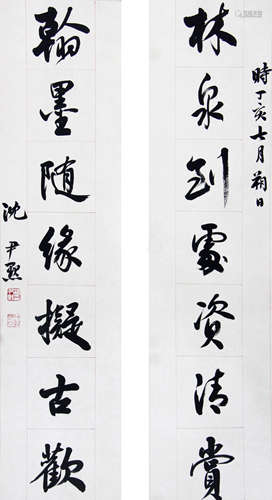 時丁亥七月朔日
林泉到處資清賞
翰墨随緣擬古歡
沈尹默